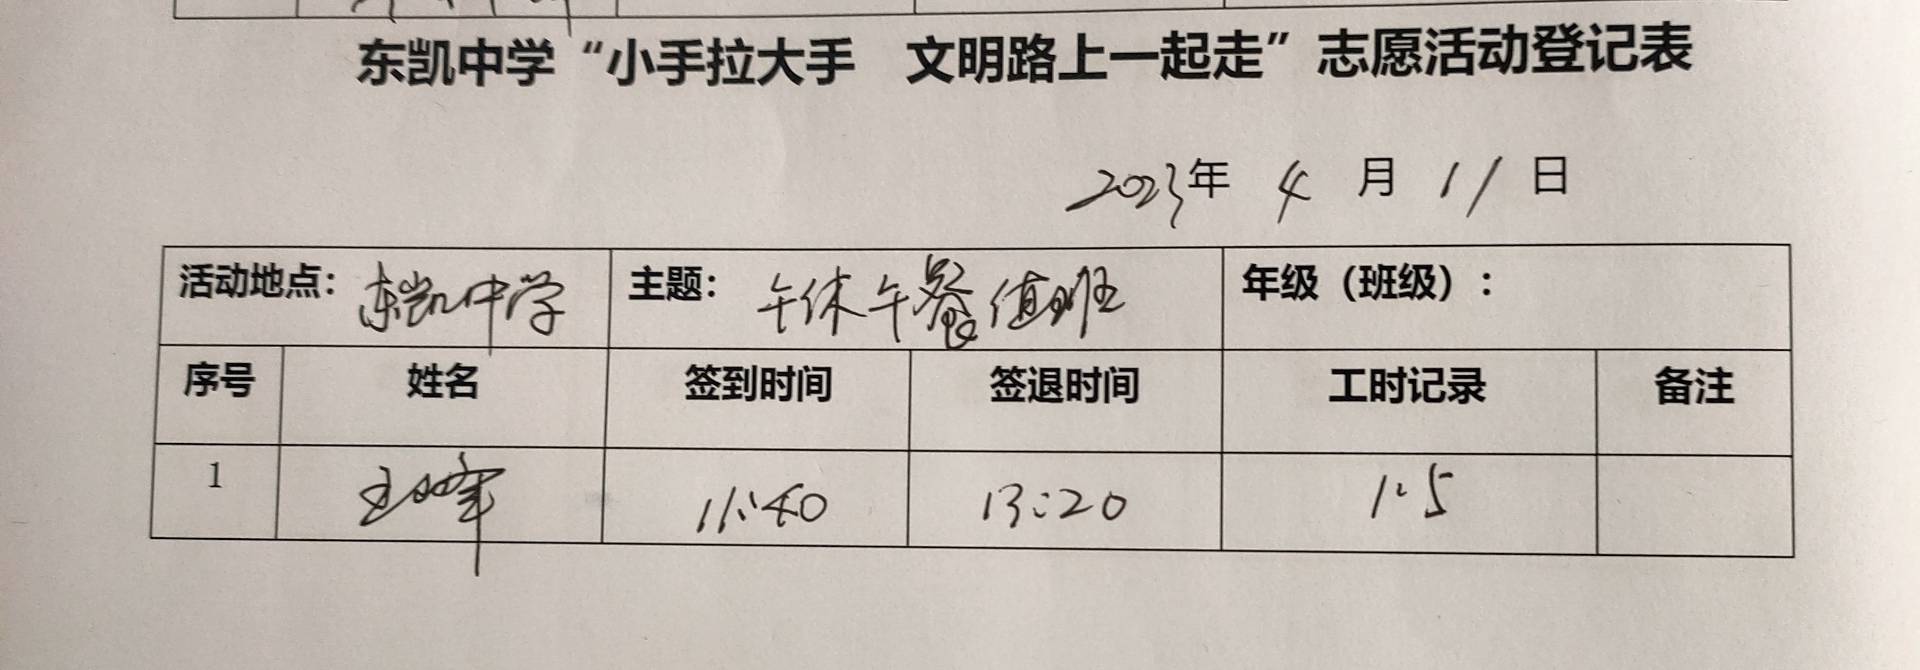 东凯中学“小手拉大手 文明路上一起走”志愿活动登记表
2023年 4 月 11 日
活动地点: 东凯中学 主题: 午休午餐值班 年级（班级）:
序号 姓名 签到时间 签退时间 工时记录 备注
1 11:40 13:20 1.5